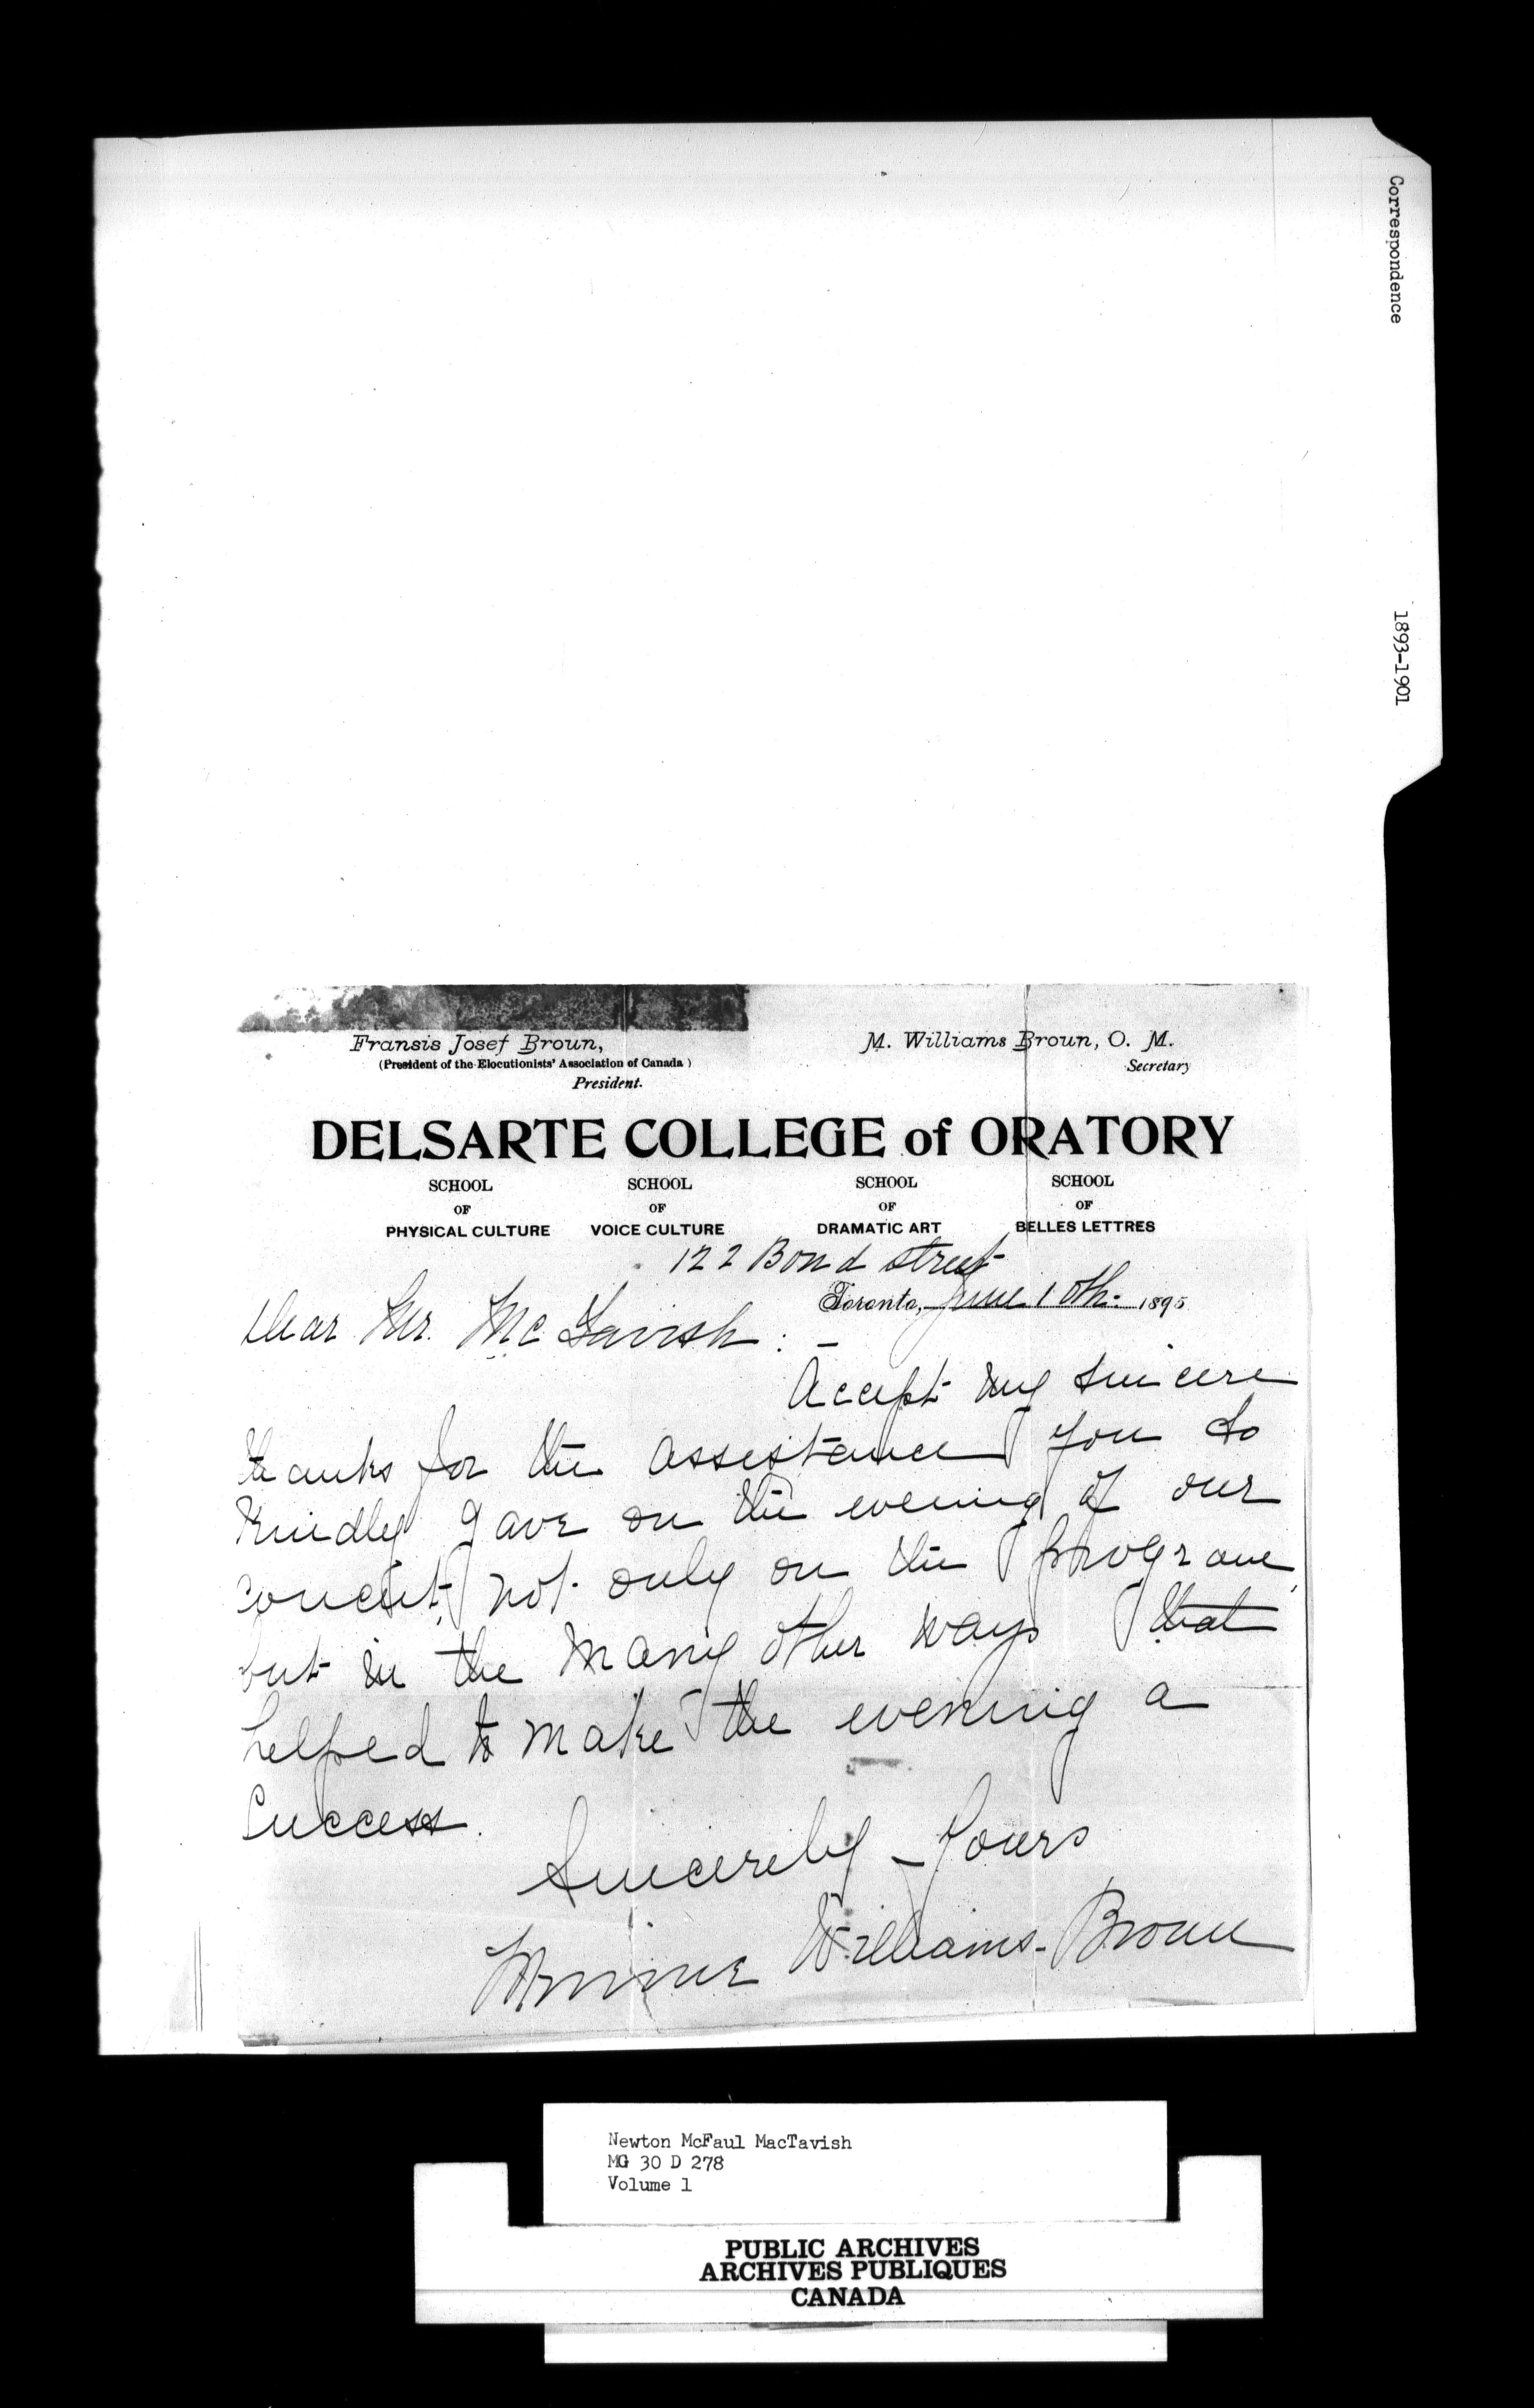 Correspondence
1893-1901
Fransis Josef Broun,
(President of the Elocutionists' Association of Canada)
President.
M. Williams Broun, O. M.
Secretary
DELSARTE COLLEGE of ORATORY
SCHOOL
OF
PHYSICAL CULTURE
SCHOOL
OF
VOICE CULTURE
SCHOOL
OF
DRAMATIC ART
SCHOOL
OF
BELLES LETTRES
122 Bond street
Toronto, June 10th. 1895
Dear Mr. McTavish: -
Accept my sincere
thanks for the assistance you so
kindly gave on the evening of our
concert, not only on the program,
but in the many other ways that
helped to make the evening a
success.
Sincerely Yours
Minnie Williams-Broun
Newton McFaul MacTavish
MG 30 D 278
Volume 1
PUBLIC ARCHIVES
ARCHIVES PUBLIQUES
CANADA